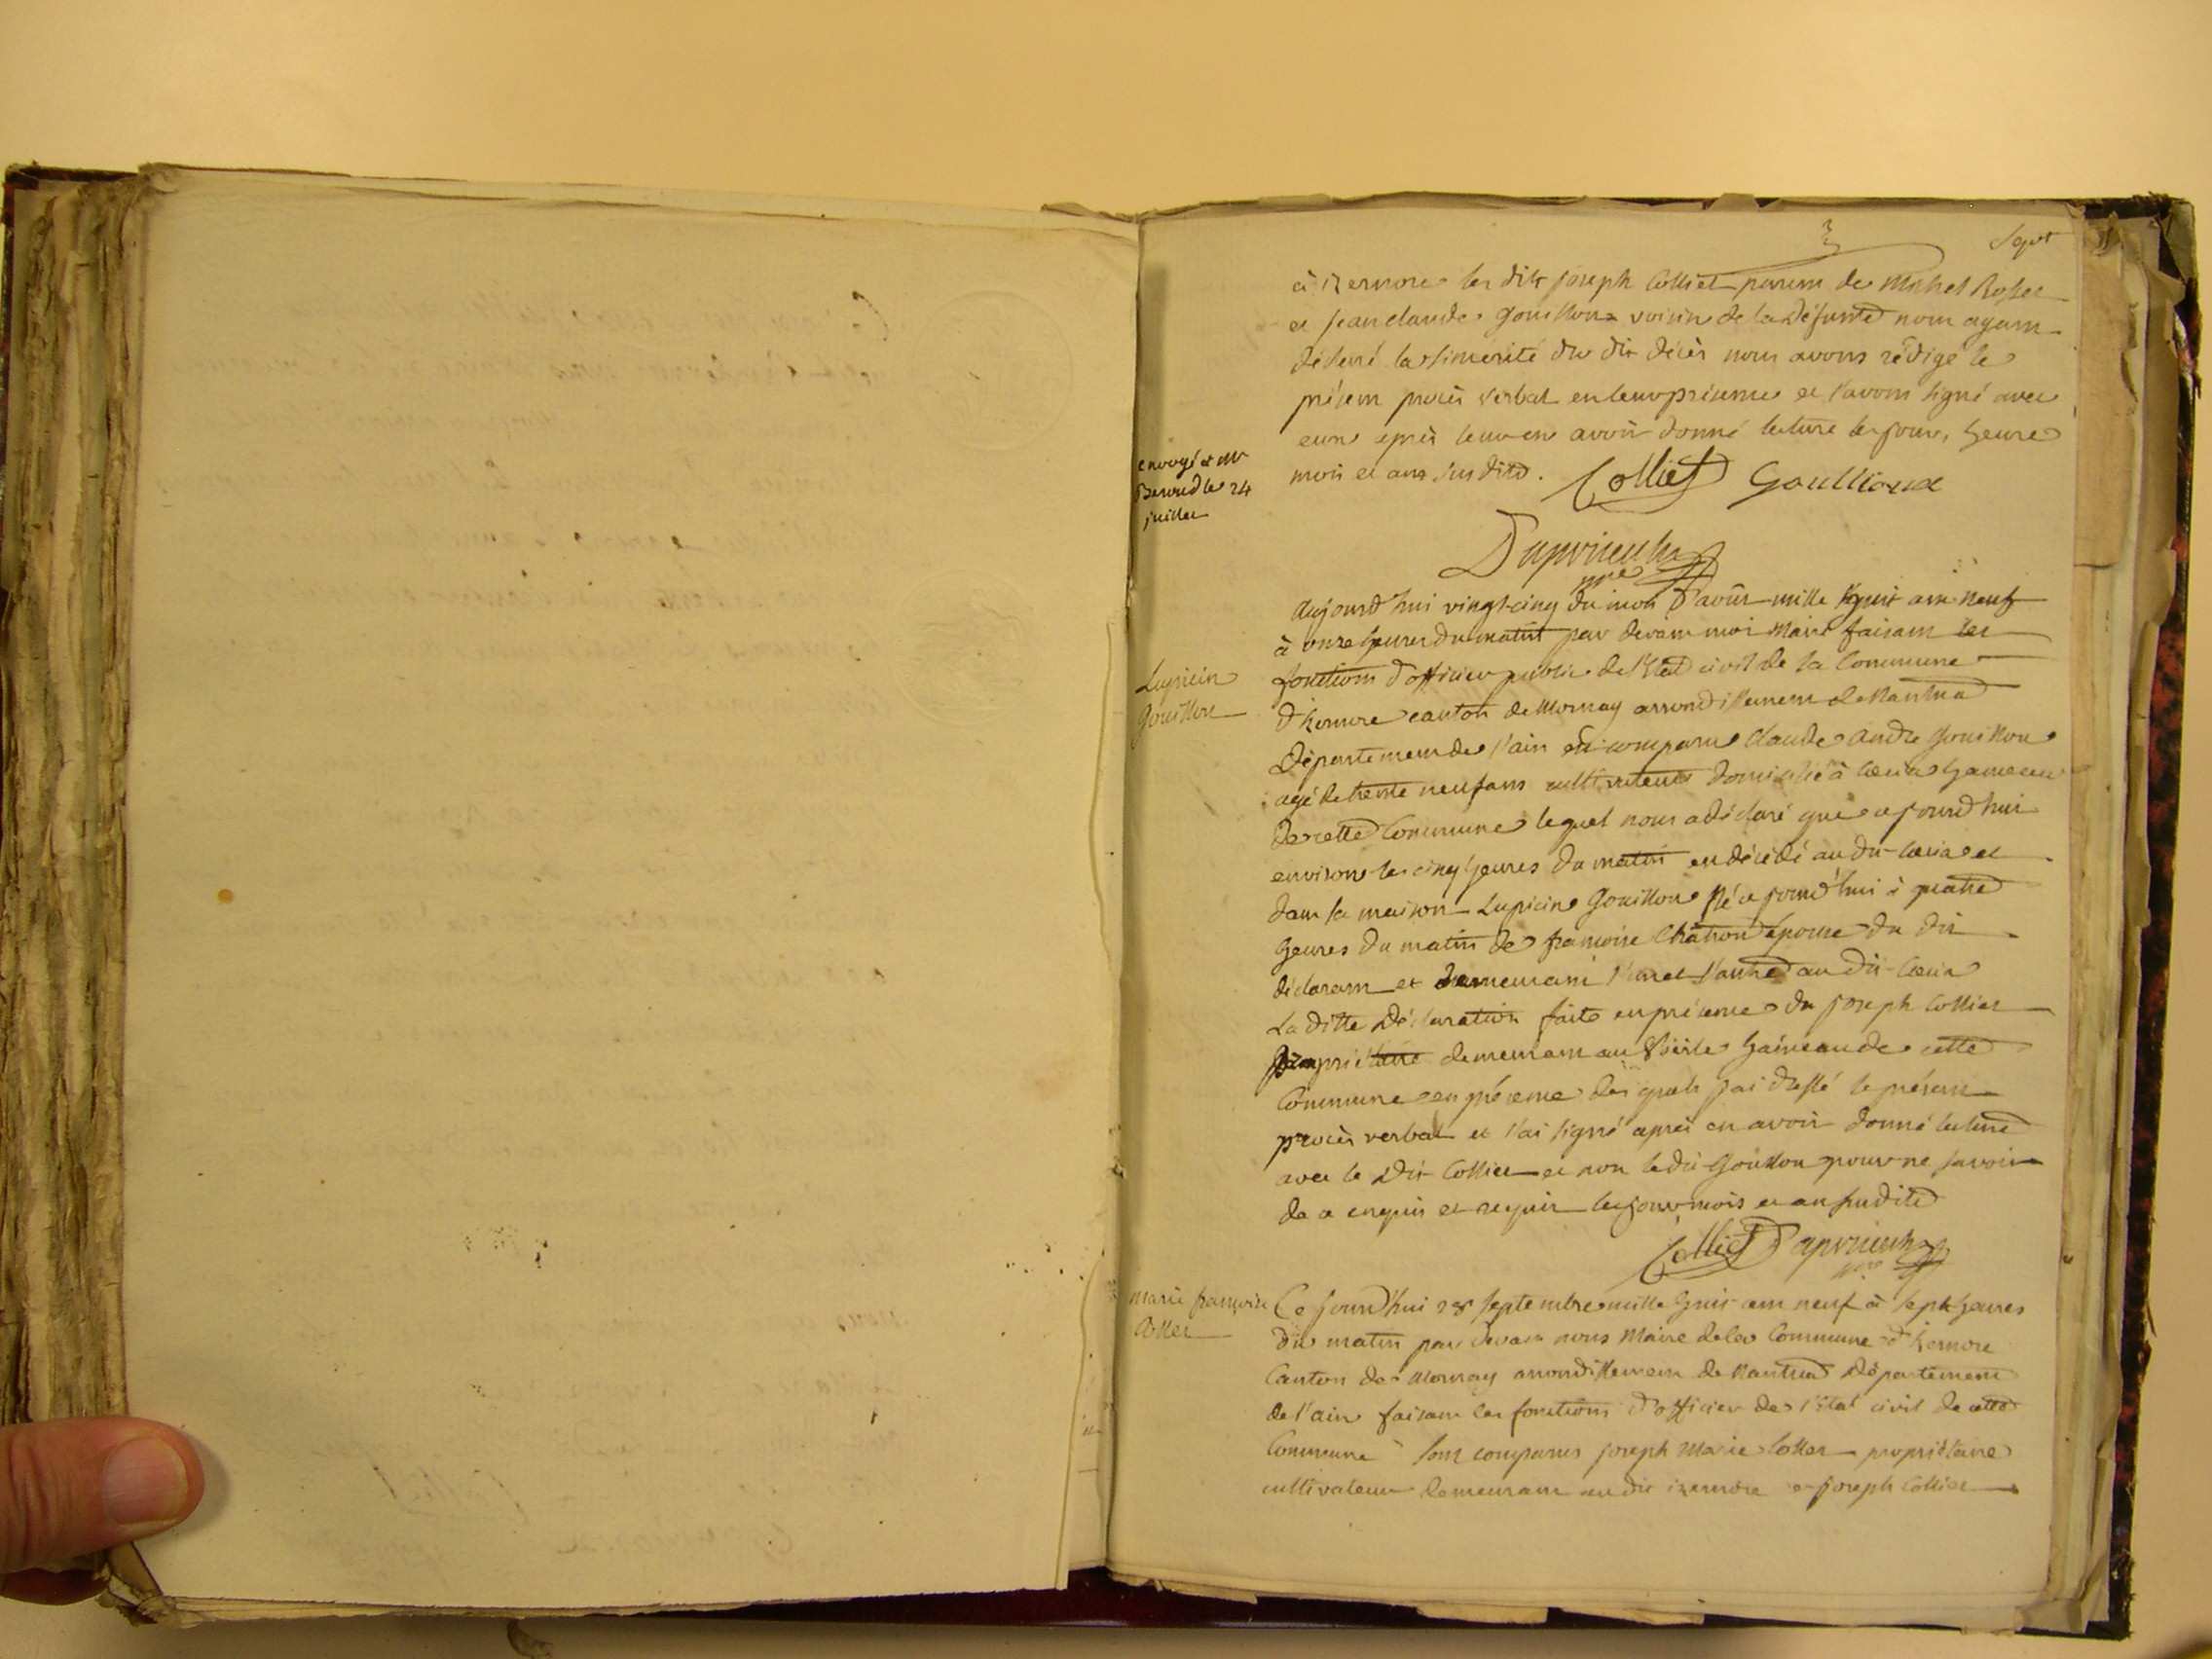 Sept
à izernore les dits joseph Colliet parent de Michel Rosset
et jean claude gouillon voisin de la Défunte nous ayant
déclaré la sincérité du dit décès nous avons rédigé le
présent procès verbal en leur présence et l'avons signé avec
eux après leur en avoir donné lecture les jour, heure
mois et ans sus dits. Colliet Goullioud
envoyé à mr
le 24
juillet
Dupvieuh
mre
Lupicin
Gouillon
Aujourd'hui vingt-cinq du mois d'août mille huit cent neuf
à onze heures du matin par devant moi Maire faisant les
fonctions d'officier public de l'état civil de la Commune
d'izernore canton de Mornay arrondissement de Nantua
Département de l'ain est comparu Claude André Gouillon
agé de trente neuf ans cultivateur domicilié à Ceissia hameau
de cette Commune lequel nous a déclaré que ce jourd'hui
environ les cinq heures du matin est décédé au dit Ceissia et
dans sa maison Lupicin Gouillon Né ce jourd'hui à quatre
heures du matin de françoise Chatron épouse du dit
déclarant et demeurant l'un et l'autre au dit Ceissia
La ditte Déclaration faite en présence du joseph Colliet
propriétaire demeurant au hameau de cette
Commune en présence des quels j'ai dressé le présent
procès verbal et l'ai signé après en avoir donné lecture
avec le Dit Colliet et non le dit Gouillon pour ne savoir
de ce enquis et requis les jour mois et an susdits
Colliet Dupvieuh
mre
marie françoise
Collet
Ce jourd'hui 28 septembre mille huit cent neuf à sept heures
du matin par devant nous Maire de la Commune d'izernore
Canton de Mornay arrondissement de Nantua Département
de l'ain faisant les fonctions d'officier de l'état civil de cette
Commune Sont comparus joseph Marie Collet propriétaire
cultivateur demeurant au dit izernore et joseph Colliet